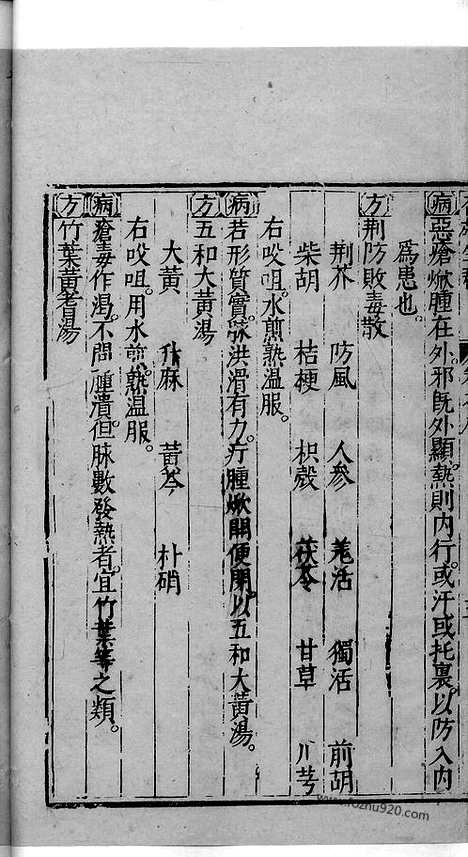 病惡瘡焮腫在外。邪既外顯。熱則内行。或汗或托裏。以防入内
為患也。
方荆防敗毒散
荆芥 防風 人參 羗活 獨活 前胡
柴胡 桔梗 枳殼 茯苓 甘草 川芎
右㕮咀。水煎熟温服。
病若形質實。脉洪滑有力。疔腫焮開便閉。以五和大黄湯。
方五和大黄湯
大黄 升麻 黄芩 朴硝
右㕮咀。用水煎熟温服。
病瘡毒作渴。不問腫潰。但脉數發熱者。宜竹葉等之類。
方竹葉黄耆湯